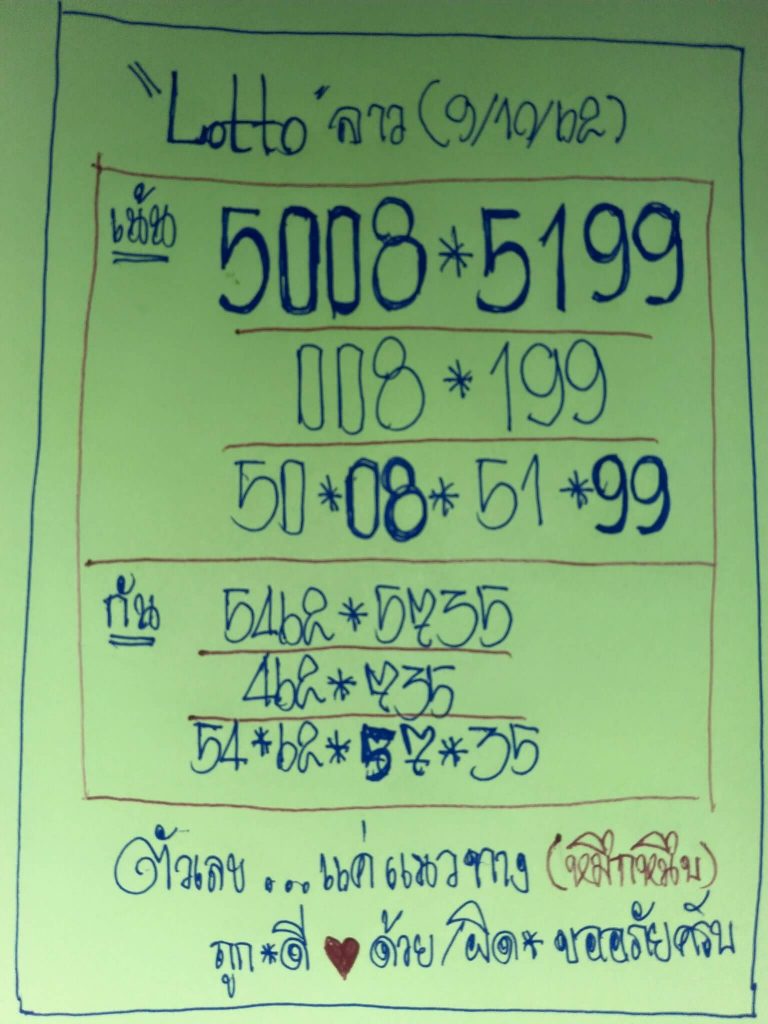 "Lotto" ลาว (9/10/62)
เน้น 5008*5199
008*199
50*08*51*99
กัน 5462*5735
462*735
54*62*57*35
ตัวเลข...แค่แนวทาง (หมึกหมึบ)
ถูก*ดี ♥ ด้วย/ผิด* ขออภัยครับ